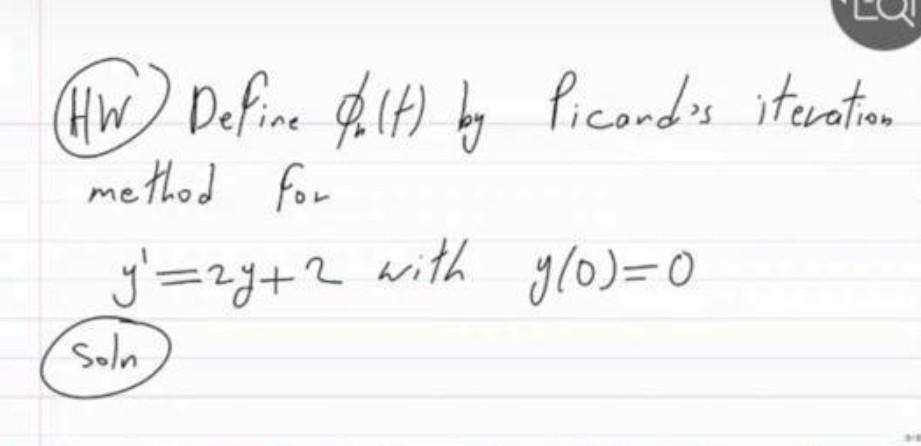 HW Define ϕₙ(t) by Picard's iteration
method for
y'=2y+2 with y(0)=0
Soln